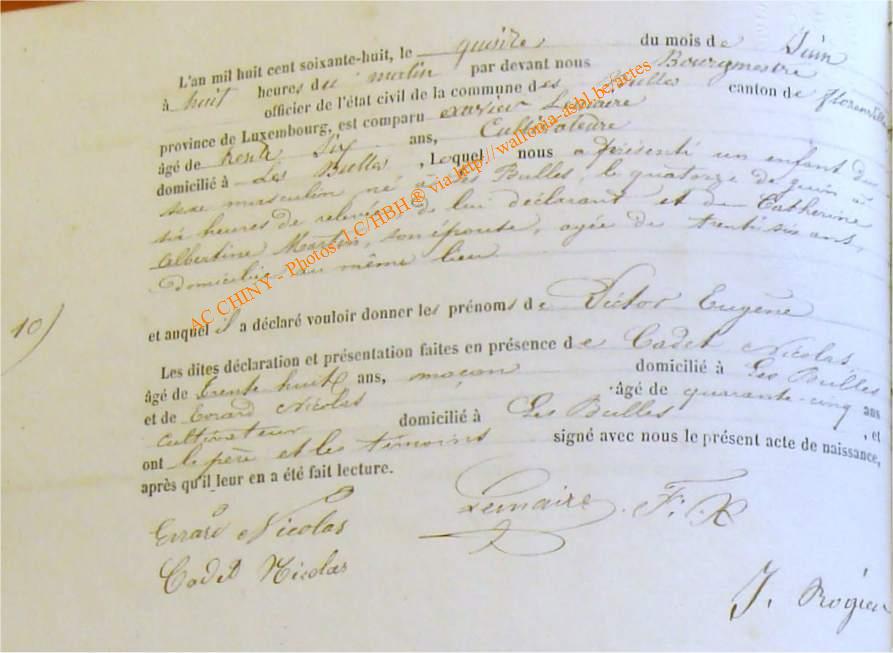 L'an mil huit cent soixante-huit, le quinze du mois de Juin
à huit heures du matin par devant nous Bourgmestre
officier de l'état civil de la commune des Bulles canton de florenville
province de Luxembourg, est comparu Lemaire
âgé de trente six ans, Cultivateur
domicilié à Les Bulles, Lequel nous a présenté un enfant du
sexe masculin né à Les Bulles, le quatorze de juin à
six heures de relevée de lui déclarant et de Catherine
Albertine Martin, son épouse, agée de trente six ans,
Domiciliée au même lieu
10)
et auquel il a déclaré vouloir donner les prénoms de Victor Eugène
Les dites déclaration et présentation faites en présence de Cadet Nicolas,
âgé de trente huit ans, maçon domicilié à Les Bulles
et de Erard Nicolas âgé de quarante-cinq ans
cultivateur domicilié à Les Bulles, et
ont le père et les témoins signé avec nous le présent acte de naissance,
après qu'il leur en a été fait lecture.
Errard Nicolas Lemaire. F. X
Cadet Nicolas
J. Rogier
AC CHINY - Photos: J.C/HBH® via http://wallonia-asbl.be/actes